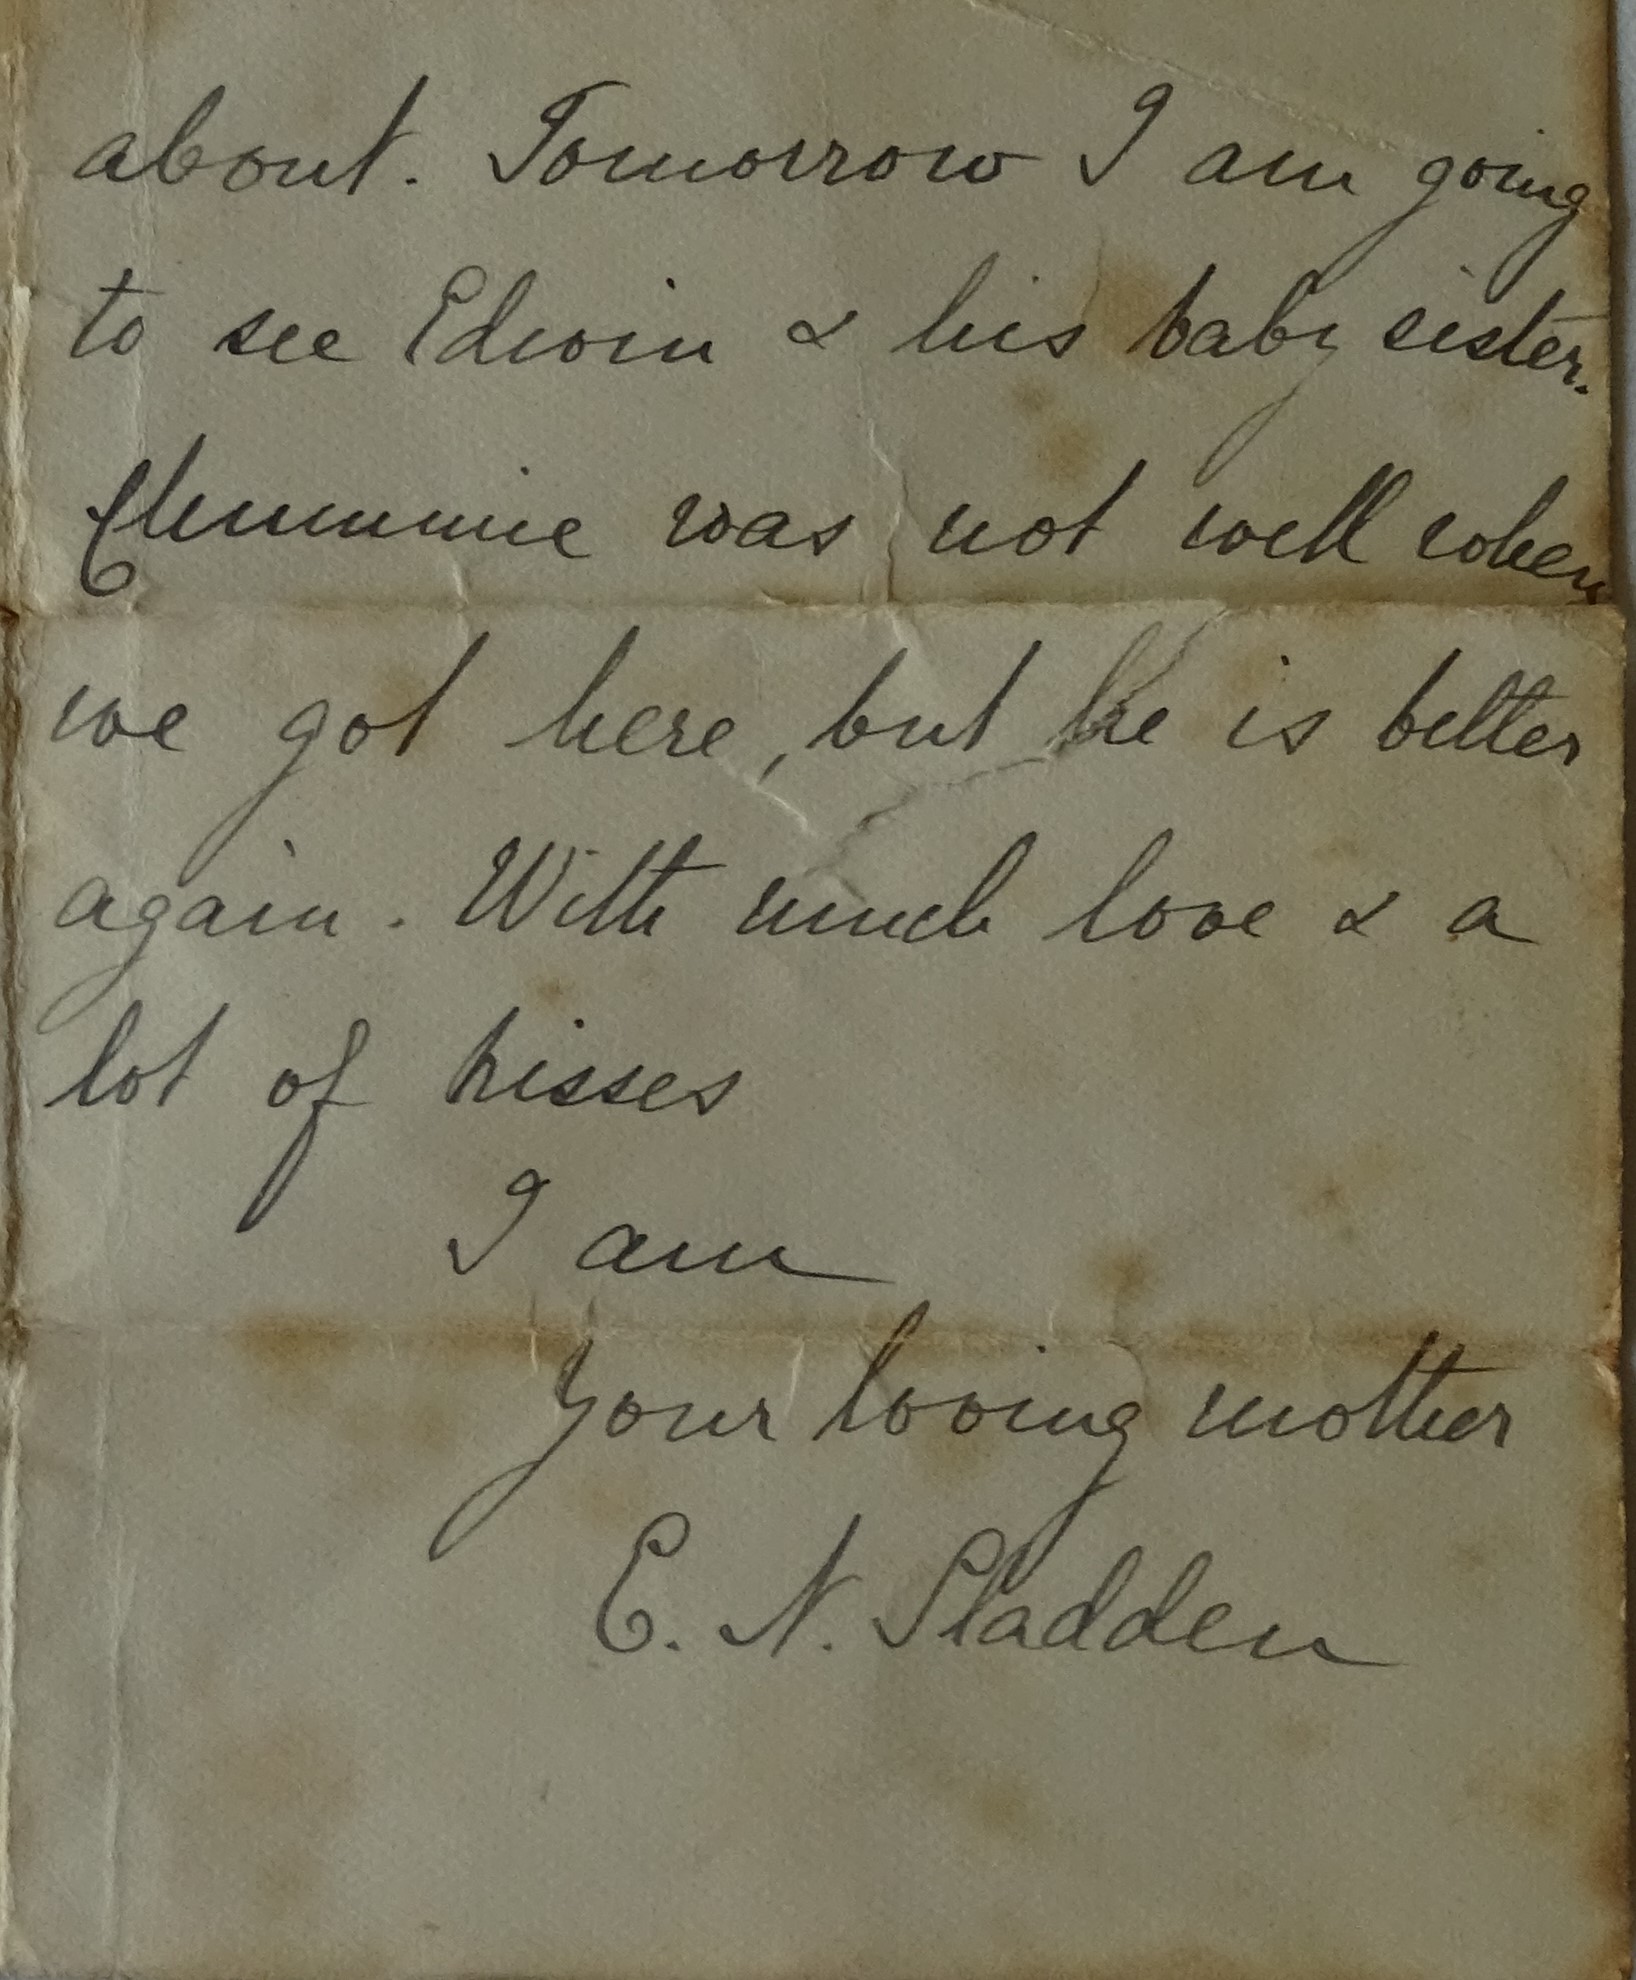 about. Tomorrow I am going
to see Edwin & his baby sister.
Clemmie was not well when
we got here, but he is better
again. With much love & a
lot of kisses
I am
Your loving mother
E. N. Sladden